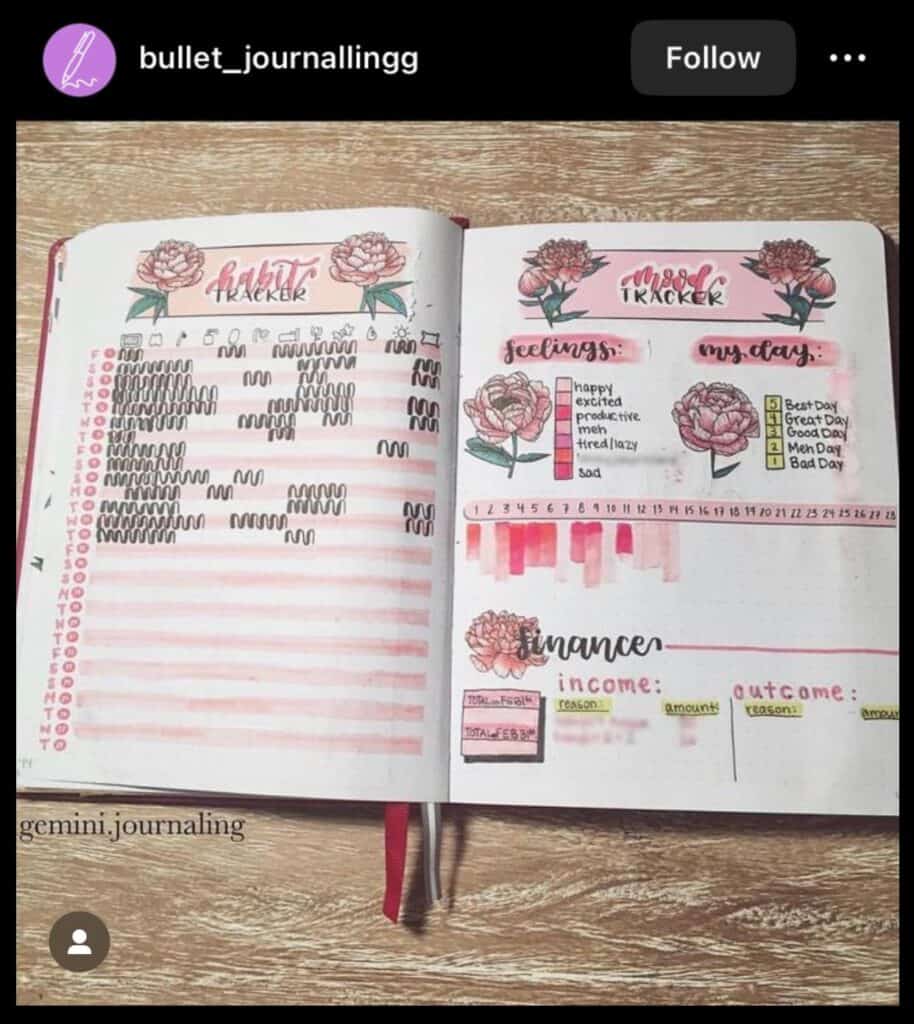 bullet_journallingg
Follow
habit
TRACKER
F
S
S
M
T
W
T
F
S
S
M
T
W
T
F
S
S
M
T
W
T
F
S
S
M
T
W
T
mood
TRACKER
feelings:
happy
excited
productive
meh
tired/lazy
sad
my day:
5 Best Day
4 Great Day
3 Good Day
2 Meh Day
1 Bad Day
1 2 3 4 5 6 7 8 9 10 11 12 13 14 15 16 17 18 19 20 21 22 23 24 25 26 27 28
finance
TOTAL
TOTAL
income:
reason: amount:
outcome:
reason: amoun
gemini.journaling